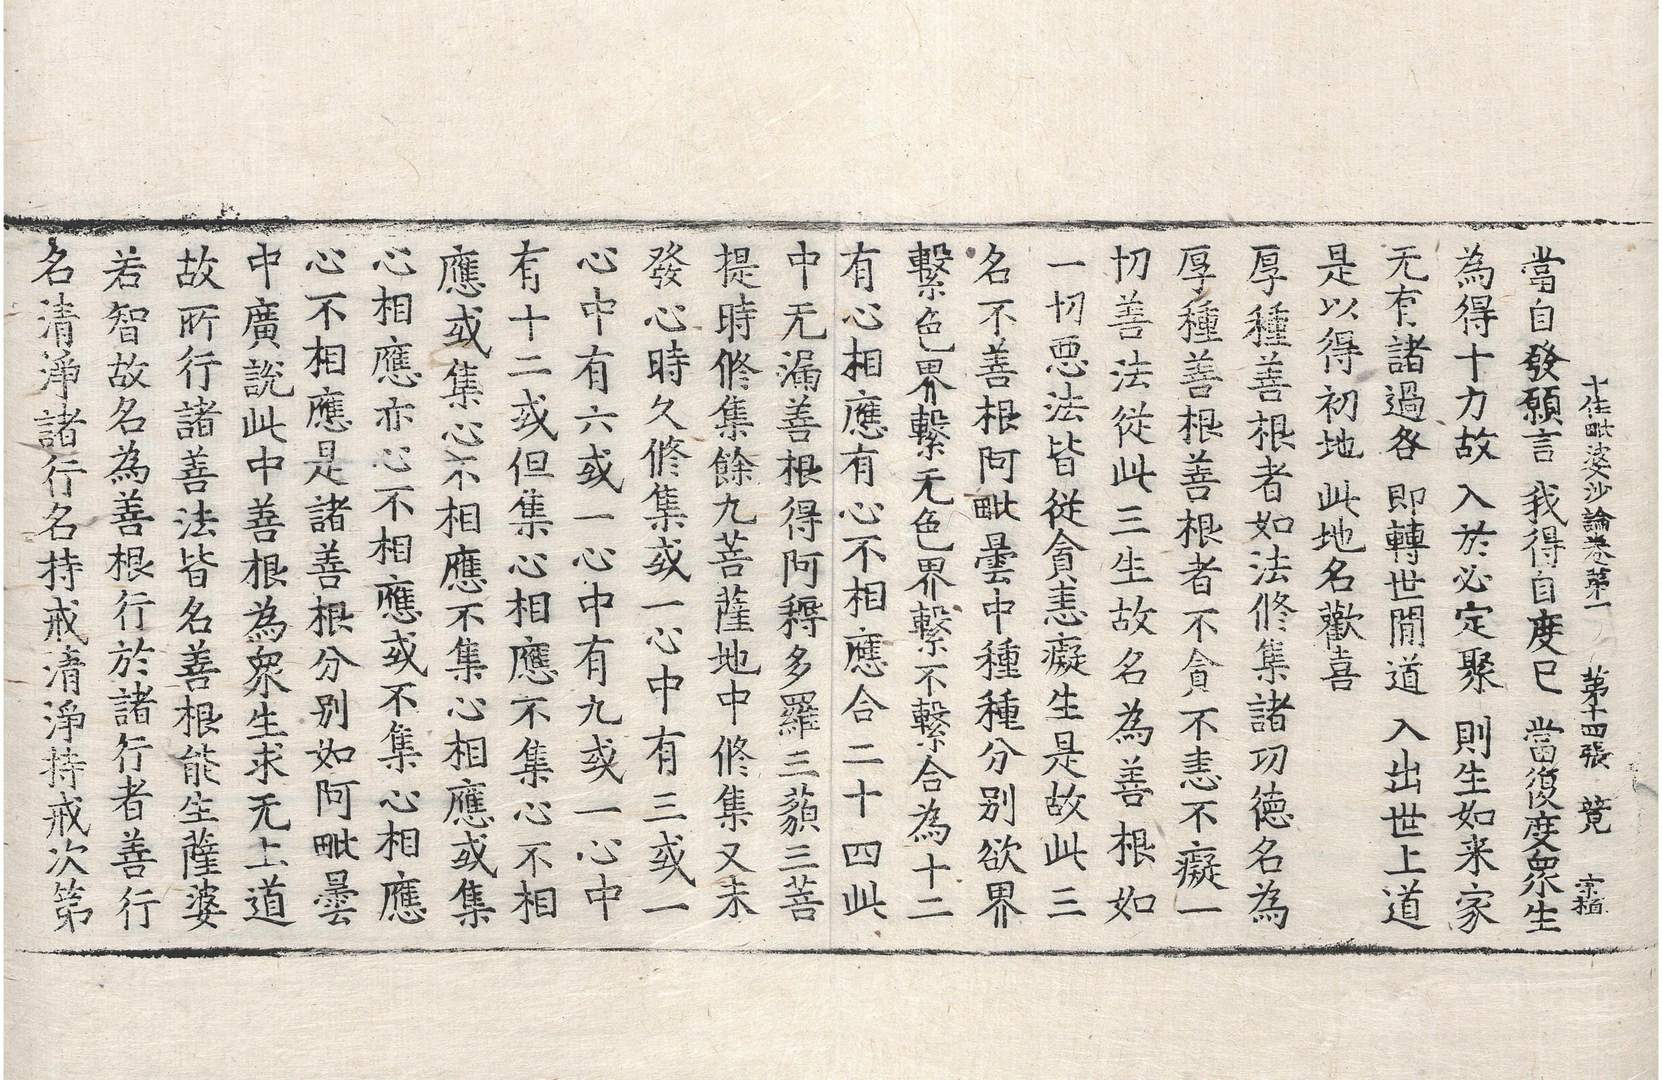 十住毗婆沙論卷第一 第十四張 竟 宗植
當自發願言 我得自度已 當復度衆生
為得十力故 入於必定聚 則生如来家
无有諸過各 即轉世閒道 入出世上道
是以得初地 此地名歡喜
厚種善根者如法修集諸功德名為
厚種善根善根者不貪不恚不癡一
切善法從此三生故名為善根如
一切惡法皆從貪恚癡生是故此三
名不善根阿毗曇中種種分別欲界
繫色界繫无色界繫不繫合為十二
有心相應有心不相應合二十四此
中无漏善根得阿耨多羅三藐三菩
提時修集餘九菩薩地中修集又未
發心時久修集或一心中有三或一
心中有六或一心中有九或一心中
有十二或但集心相應不集心不相
應或集心不相應不集心相應或集
心相應亦心不相應或不集心相應
心不相應是諸善根分別如阿毗曇
中廣說此中善根為衆生求无上道
故所行諸善法皆名善根能生薩婆
若智故名為善根行於諸行者善行
名清淨諸行名持戒清淨持戒次第